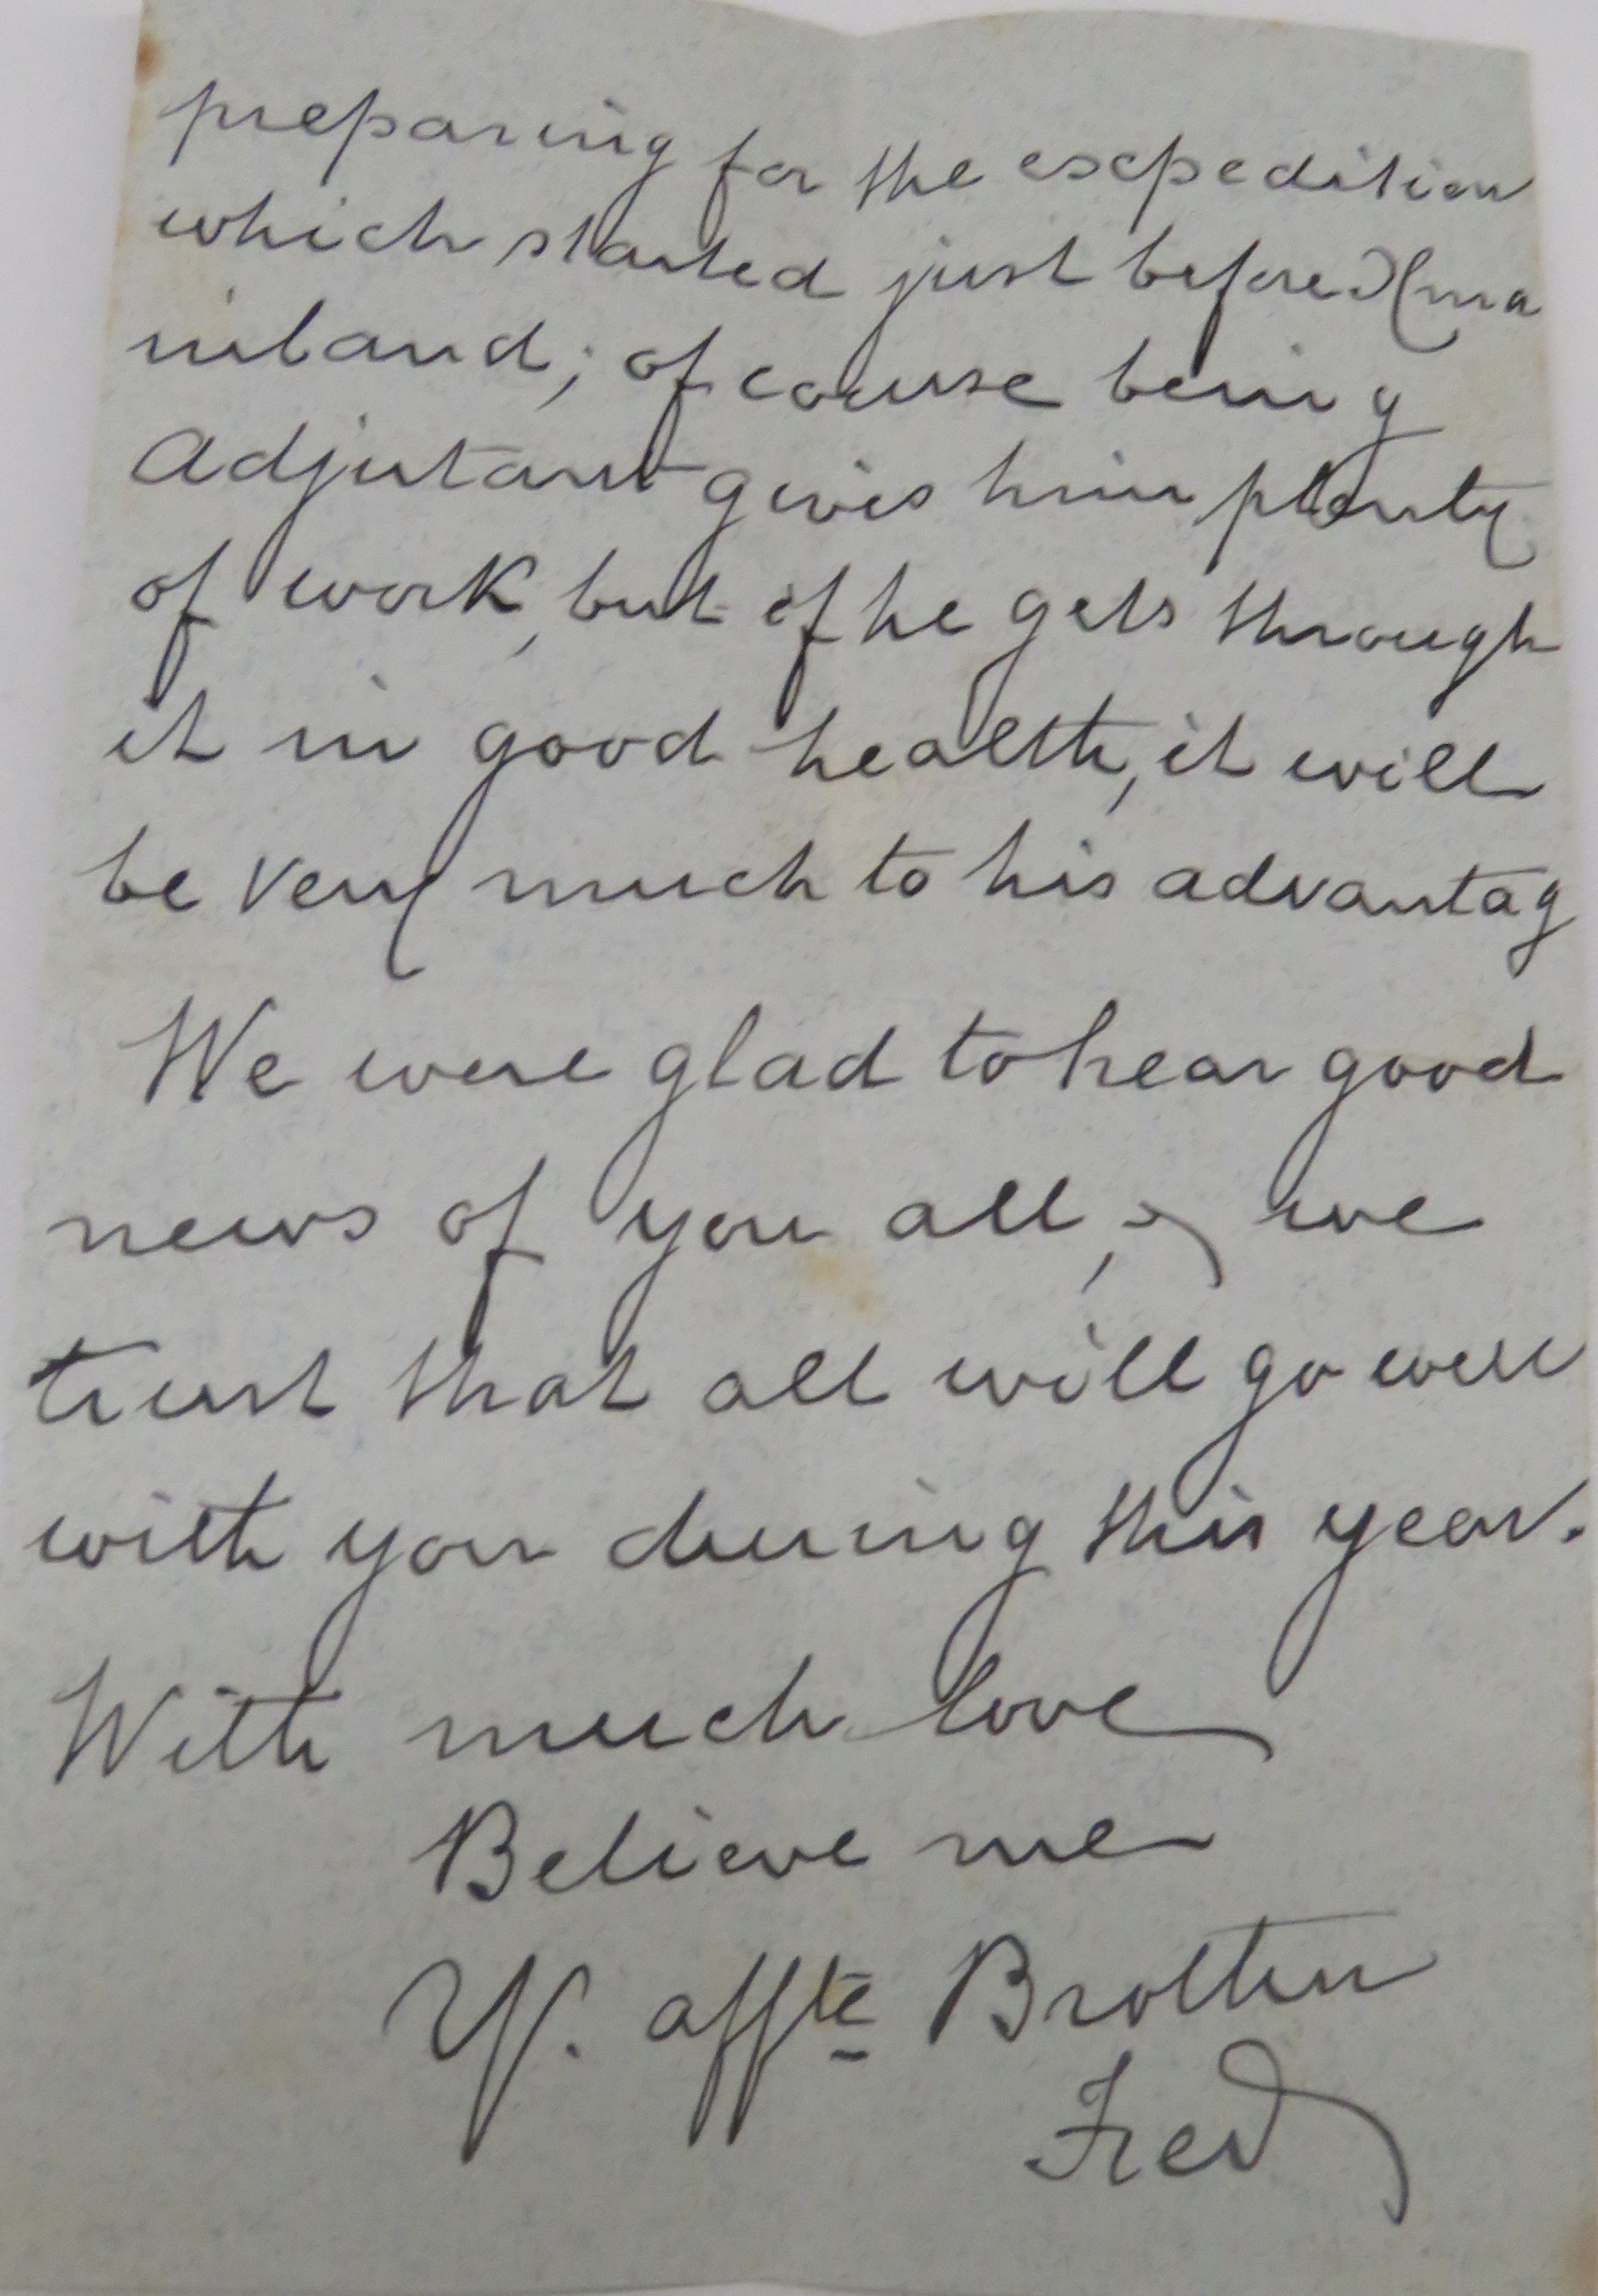 preparing for the expedition
which started just before Xma
inland; of course being
Adjutant gives him plenty
of work, but if he gets through
it in good health, it will
be very much to his advantag
We were glad to hear good
news of you all, & we
trust that all will go well
with you during this year.
With much love
Believe me
Yr. affte Brother
Fred